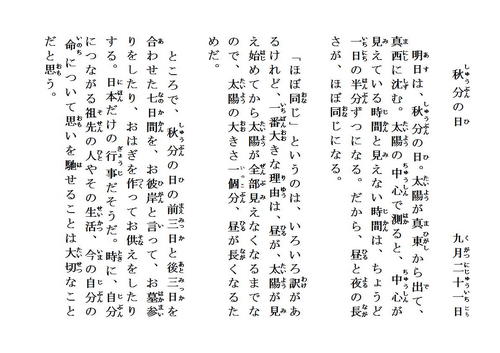 秋分の日　九月二十一日
明日は、秋分の日。太陽が真東から出て、
真西に沈む。太陽の中心で測ると、中心が
見えている時間と見えない時間は、ちょうど
一日の半分ずつになる。だから、昼と夜の長
さが、ほぼ同じになる。
「ほぼ同じ」というのは、いろいろ訳があ
るけれど、一番大きな理由は、昼が、太陽が見
え始めてから太陽が全部見えなくなるまでな
ので、太陽の大きさ一個分、昼が長くなるた
めだ。
ところで、秋分の日の前三日と後三日を
合わせた七日間を、お彼岸と言って、お墓参
りをしたり、おはぎを作ってお供えをしたり
する。日本だけの行事だそうだ。時に、自分
につながる祖先の人やその生活、今の自分の
命について思いを馳せることは大切なこと
だと思う。